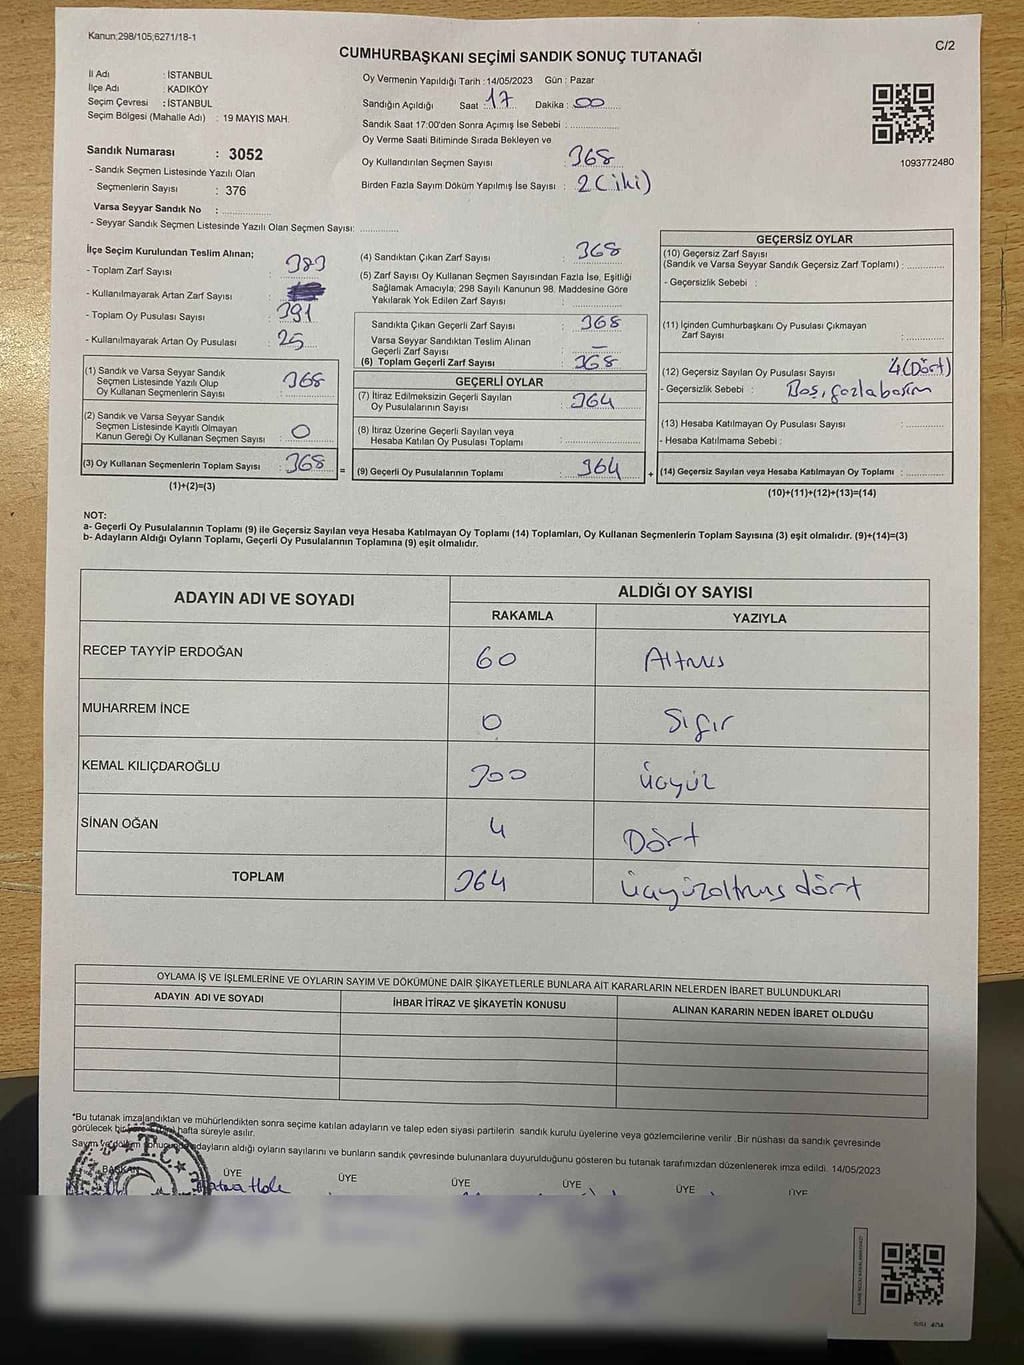 Kanun;298/105,6271/18-1
C/2
CUMHURBAŞKANI SEÇİMİ SANDIK SONUÇ TUTANAĞI
İl Adı : İSTANBUL
İlçe Adı : KADIKÖY
Seçim Çevresi : İSTANBUL
Seçim Bölgesi (Mahalle Adı) : 19 MAYIS MAH.
Oy Vermenin Yapıldığı Tarih : 14/05/2023 Gün : Pazar
Sandığın Açıldığı Saat : 17 Dakika : 00
Sandık Saat 17:00'den Sonra Açımış İse Sebebi :
Oy Verme Saati Bitiminde Sırada Bekleyen ve
Oy Kullandırılan Seçmen Sayısı : 368
Birden Fazla Sayım Döküm Yapılmış İse Sayısı : 2 (iki)
1093772480
Sandık Numarası : 3052
- Sandık Seçmen Listesinde Yazılı Olan
Seçmenlerin Sayısı : 376
Varsa Seyyar Sandık No :
- Seyyar Sandık Seçmen Listesinde Yazılı Olan Seçmen Sayısı:
İlçe Seçim Kurulundan Teslim Alınan;
- Toplam Zarf Sayısı : 383
- Kullanılmayarak Artan Zarf Sayısı :
- Toplam Oy Pusulası Sayısı : 391
- Kullanılmayarak Artan Oy Pusulası : 25
(1) Sandık ve Varsa Seyyar Sandık
Seçmen Listesinde Yazılı Olup
Oy Kullanan Seçmenlerin Sayısı : 368
(2) Sandık ve Varsa Seyyar Sandık
Seçmen Listesinde Kayıtlı Olmayan
Kanun Gereği Oy Kullanan Seçmen Sayısı : 0
(3) Oy Kullanan Seçmenlerin Toplam Sayısı : 368
(1)+(2)=(3)
(4) Sandıktan Çıkan Zarf Sayısı : 368
(5) Zarf Sayısı Oy Kullanan Seçmen Sayısından Fazla İse, Eşitliği
Sağlamak Amacıyla; 298 Sayılı Kanunun 98. Maddesine Göre
Yakılarak Yok Edilen Zarf Sayısı :
Sandıkta Çıkan Geçerli Zarf Sayısı : 368
Varsa Seyyar Sandıktan Teslim Alınan
Geçerli Zarf Sayısı : –
(6) Toplam Geçerli Zarf Sayısı : 368
GEÇERLİ OYLAR
(7) İtiraz Edilmeksizin Geçerli Sayılan
Oy Pusulalarının Sayısı : 364
(8) İtiraz Üzerine Geçerli Sayılan veya
Hesaba Katılan Oy Pusulası Toplamı :
= (9) Geçerli Oy Pusulalarının Toplamı : 364 +
GEÇERSİZ OYLAR
(10) Geçersiz Zarf Sayısı
(Sandık ve Varsa Seyyar Sandık Geçersiz Zarf Toplamı) :
- Geçersizlik Sebebi :
(11) İçinden Cumhurbaşkanı Oy Pusulası Çıkmayan
Zarf Sayısı :
(12) Geçersiz Sayılan Oy Pusulası Sayısı : 4 (Dört)
- Geçersizlik Sebebi : Boş, fazla basım
(13) Hesaba Katılmayan Oy Pusulası Sayısı :
- Hesaba Katılmama Sebebi :
(14) Geçersiz Sayılan veya Hesaba Katılmayan Oy Toplamı :
(10)+(11)+(12)+(13)=(14)
NOT:
a- Geçerli Oy Pusulalarının Toplamı (9) ile Geçersiz Sayılan veya Hesaba Katılmayan Oy Toplamı (14) Toplamları, Oy Kullanan Seçmenlerin Toplam Sayısına (3) eşit olmalıdır. (9)+(14)=(3)
b- Adayların Aldığı Oyların Toplamı, Geçerli Oy Pusulalarının Toplamına (9) eşit olmalıdır.
ADAYIN ADI VE SOYADI ALDIĞI OY SAYISI
RAKAMLA YAZIYLA
RECEP TAYYİP ERDOĞAN 60 Altmış
MUHARREM İNCE 0 Sıfır
KEMAL KILIÇDAROĞLU 300 Üçyüz
SİNAN OĞAN 4 Dört
TOPLAM 364 üçyüzaltmış dört
OYLAMA İŞ VE İŞLEMLERİNE VE OYLARIN SAYIM VE DÖKÜMÜNE DAİR ŞİKAYETLERLE BUNLARA AİT KARARLARIN NELERDEN İBARET BULUNDUKLARI
ADAYIN ADI VE SOYADI İHBAR İTİRAZ VE ŞİKAYETİN KONUSU ALINAN KARARIN NEDEN İBARET OLDUĞU
*Bu tutanak imzalandıktan ve mühürlendikten sonra seçime katılan adayların ve talep eden siyasi partilerin sandık kurulu üyelerine veya gözlemcilerine verilir .Bir nüshası da sandık çevresinde
görülecek bir hafta süreyle asılır.
Sayım adayların aldığı oyların sayılarını ve bunların sandık çevresinde bulunanlara duyurulduğunu gösteren bu tutanak tarafımızdan düzenlenerek imza edildi. 14/05/2023
T.C.
BAŞKAN ÜYE ÜYE ÜYE ÜYE ÜYE ÜYE